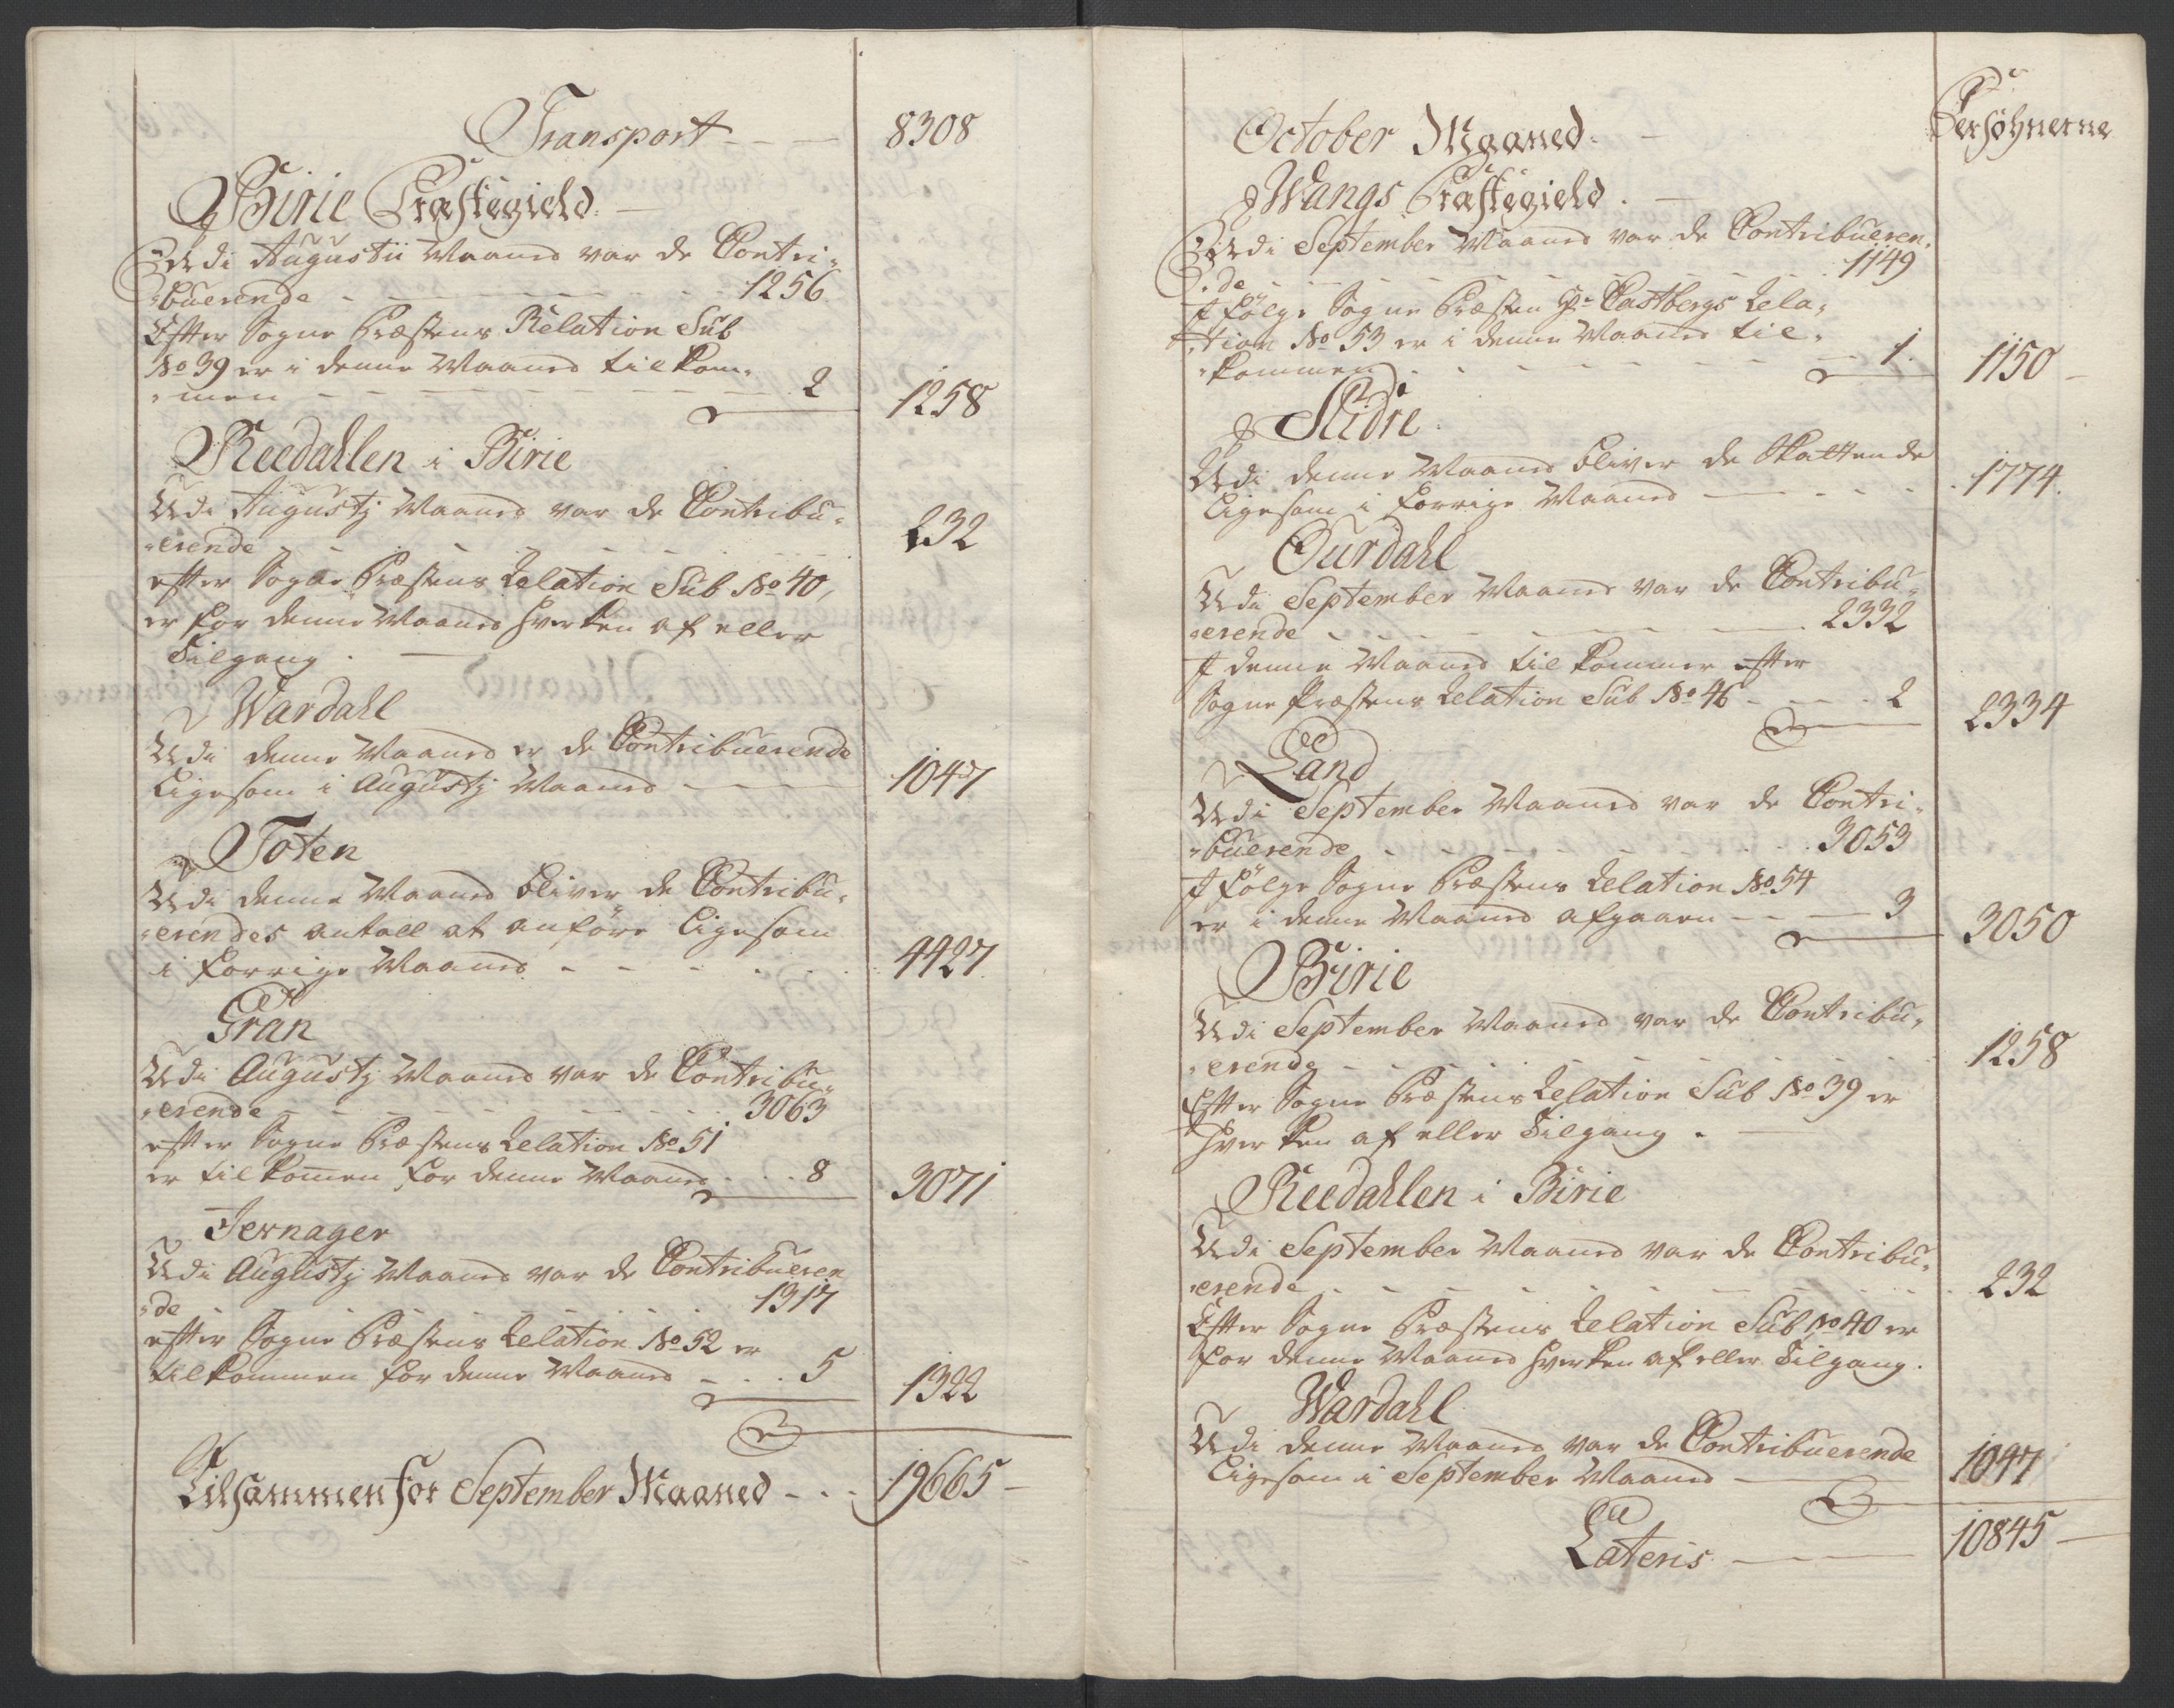 Transport - - - 8308
Birie Præstegield. -
Udi Augustii Maaned var de Contri-
-buerende - - - - 1256.
Efter Sogne Præstens Relation Sub
No 39 er i denne Maaned tilkom-
-men - - - - 2 1258
Reedahlen i Birie
Udi Augustj Maaned var de Contribu-
-erende - - - - 232
efter Sogne Præstens Relation Sub No 40,
er for denne Maaned hverken af eller
Tilgang. -
Wardahl
Udi denne Maaned er de Contribuerende
Ligesom i Augustj Maaned - - - 1047
Toten
Udi denne Maaned bliver de Contribu-
-erendes antall at anføre Ligesom
i forrige Maaned. - - - - 4427.
Gran
Udi Augustj Maaned var de Contribu-
-erende - - - - 3063
efter Sogne Præstens Relation No 51
er tilkommen for denne Maaned - - - 8 3071
Jevnager
Udi Augustj Maaned var de Contribueren
-de - - - - 1317
efter Sogne Præstens Relation No 52 er
tilkommen for denne Maaned - - - 5 1322
Tilsammen for September Maaned - - - 19665 -
Persohnerne
October Maaned. -
Wangs Præstegield. -
Udi September Maaned var de Contribueren-
-de - - - - 1149
I følge Sogne Præsten Hr Castbergs Rela-
-tion No 53 er i denne Maaned til-
-kommen - - - - 1. 1150 -
Slidre.
Udi denne Maaned bliver de Skattende
Ligesom i forrige Maaned - - - - 1774.
Ourdahl
Udi September Maaned var de Contribu-
-erende - - - - 2332
I denne Maaned tilkommer efter
Sogne Præstens Relation Sub No 46 - - - 2 2334
Land
Udi September Maaned var de Contri-
-buerende - - - - 3053
I følge Sogne Præstens Relation No 54
er i denne Maaned afgaaen - - - 3 3050
Birie
Udi September Maaned var de Contribu-
-erende - - - - 1258
Efter Sogne Præstens Relation Sub No 39 er
hverken af eller Tilgang. -
Reedahlen i Birie
Udi September Maaned var de Contribu-
-erende - - - - 232
Efter Sogne Præstens Relation Sub No 40 er
for denne Maaned hverken af eller Tilgang.
Wardahl
Udi denne Maaned var de Contribuerende
Ligesom i September Maaned - 1047
Lateris - - - 10845 -